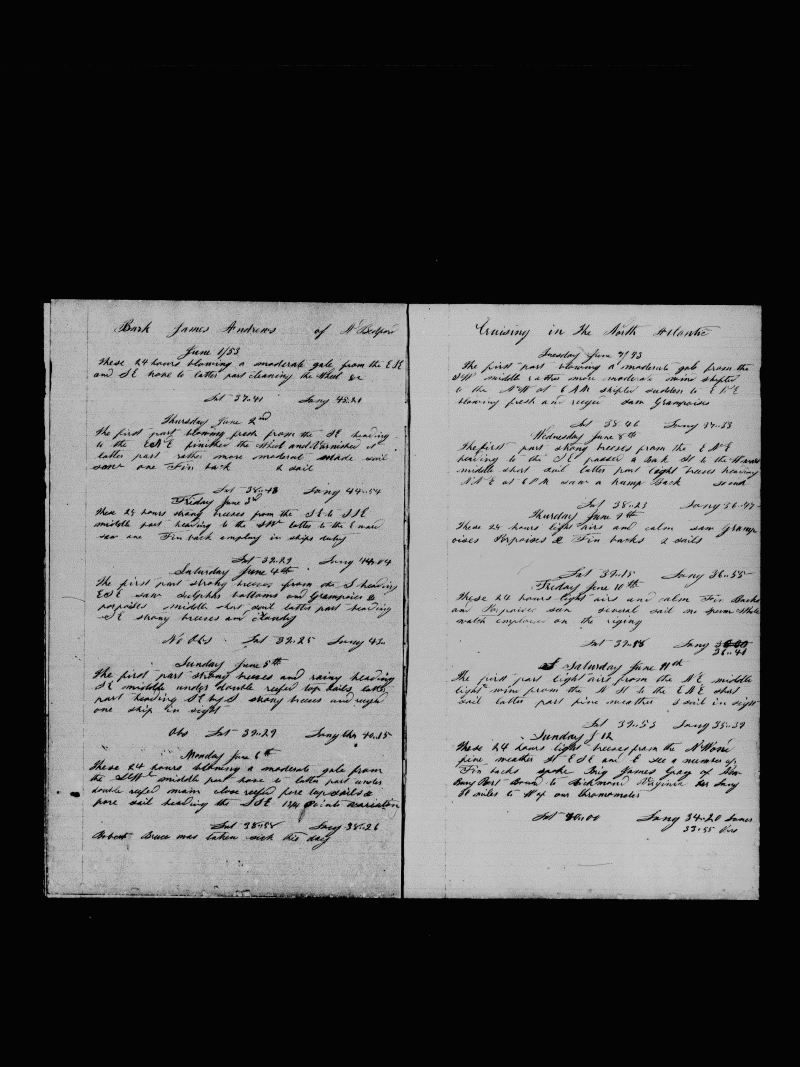 Bark James Andrews of N Bedford
June 1/53
These 24 hours blowing a moderate gale from the ESE
and SE hove to latter part cleaning the Wheel &c
Lat 37..41 Long 45.21
Thursday June 2nd
The first part blowing fresh from the SE heading
to the ENE finished the Wheel and Varnished it
latter part rather more moderate made sail
saw one Fin back & sail
Lat 38..48 Long 44..54
Friday June 3rd
These 24 hours strong breezes from the SE to SSE
middle part heading to the SW latter to the E ward
saw one Fin back employ in ships duty
Lat 39..29 Long 44..04
Saturday June 4th
The first part strong breezes from the S heading
ESE saw Sulpher bottoms and Grampoises &
porpoises middle short sail latter part heading
SE strong breezes and cloudy
No Obs Lat 39..25 Long 43..
Sunday June 5th
The first part strong breezes and rainy heading
SE middle under double reefed top sails latter
part heading SE by S strong breezes and rugh
one ship in sight
Obs Lat 39..29 Long 40..15
Monday June 6th
These 24 hours blowing a moderate gale from
the SSW middle part hove to latter part under
double reefed main close reefed fore top sails &
fore sail heading the SSE 1 3/4 points variation
Lat 38..58 Long 38..26
Robert Bruce was taken sick this day
Cruising in The North Atlantic
Tuesday June 7/53
The first part blowing a moderate gale from the
SW middle rather more moderate wind shifted
to the NW at 6 AM shifted sudden to ENE
blowing fresh and rugged saw Grampoises
Lat 38 46 Long 37..53
Wednesday June 8th
The first part strong breezes from the ENE
heading to the SE passed a Bark St to the Ward
middle short sail latter part light breezes heading
NNE at 6 PM saw a hump Back
Lat 38..23 Long 36..47
Thursday June 9th
These 24 hours light airs and calm saw Gramp
oises Porpoises & Fin backs 2 sails
Lat 39..15 Long 36..55
Friday June 10th
These 24 hours light airs and calm Fin Backs
and Porpoises seen several sail no sperm Whale
watch employed on the riging
Lat 39..18 Long
36..40
Saturday June 11th
The first part light airs from the NE middle
light wind from the N St to the ENE short
sail latter part fine weather 3 sail in sight
Lat 39..53 Long 35..39
Sunday J 12
These 24 hours light breezes from the NWard
fine weather St ESE and E see a number of
Fin backs spoke Brig James Gray of New
Bury Port Bound to Richmond Virginia her Long
miles to W of our Chronometer
Lat 40..00 Long 34..20 James
33..55 Ours